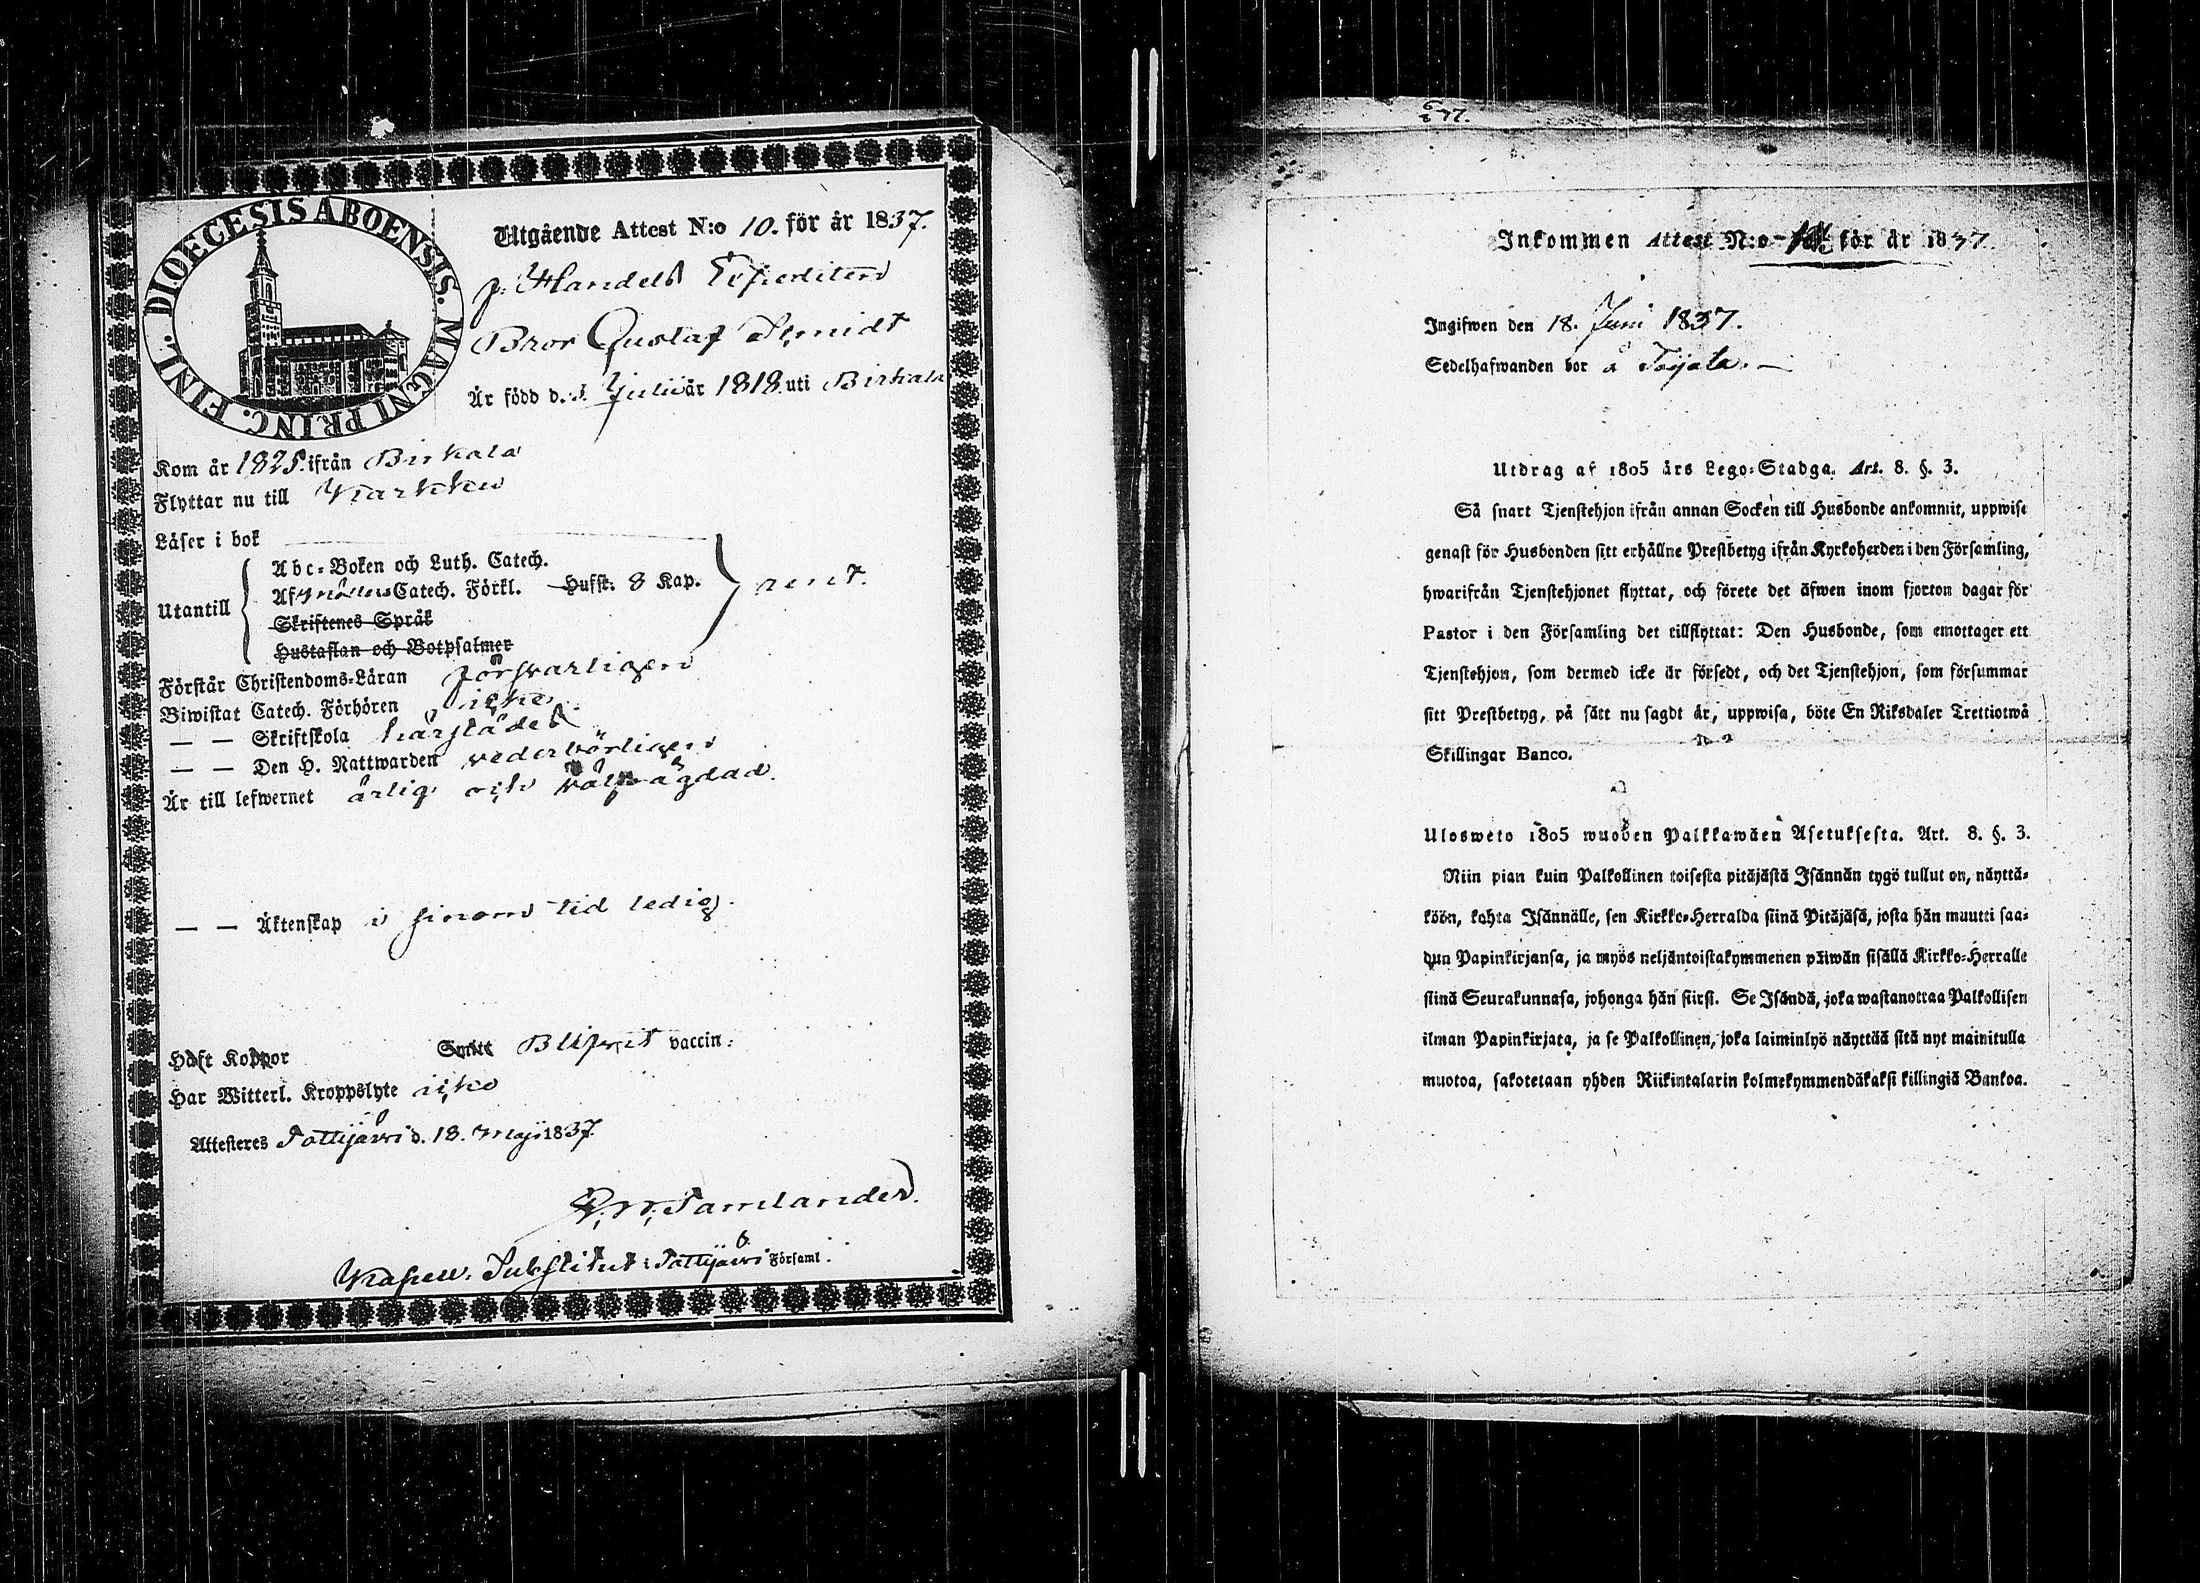 DIOECESIS ABOENSIS. MAGNI PRINC. FINL.
Utgående Attest N:o 10. för år 1837.
Handels Expediten
Bror Gustaf Schmidt
Är född d. 3. Julii år 1818. uti Birkala
Kom år 1825. ifrån Birkala
Flyttar nu till Karkku
Läser i bok
Abc-Boken och Luth. Catech.
Utantill
Af Catech. Förkl. Husst: 8 Kap.
rent.
Skriftenes Språk
Hustaflan och Botpsalmer
Förstår Christendoms-Läran försvarligen
Biwistat Catech. Förhören icke
— — Skriftskola härstädes
— — Den H. Nattwarden vederbörligen
Är till lefwernet ärlig och välvågdad.
— — Äktenskap i sinom tid ledig.
Haft Koppor Smitt Blifvit vaccin:
Har Witterl. Kroppslyte icke
Attesteres Tottijärvi d. 18. Maji 1837.
Tamlander.
Kapell. Substitut i Tottijärvi Församl.
6/8 37.
Inkommen Attest N:o för år 1837.
Ingifwen den 18. Juni 1837.
Sedelhafwanden bor å Toijala. —
Utdrag af 1805 års Lego-Stadga. Art. 8. §. 3.
Så snart Tjenstehjon ifrån annan Socken till Husbonde ankommit, uppwise
genast för Husbonden sitt erhållne Prestbetyg ifrån Kyrkoherden i den Församling,
hwarifrån Tjenstehjonet flyttat, och förete det äfwen inom fjorton dagar för
Pastor i den Församling det tillflyttat: Den Husbonde, som emottager ett
Tjenstehjon, som dermed icke är försedt, och det Tjenstehjon, som försummar
sitt Prestbetyg, på sätt nu sagdt är, uppwisa, böte En Riksdaler Trettiotwå
Skillingar Banco.
Ulosweto 1805 wuoden Palkkawäen Asetuksesta. Art. 8. §. 3.
Niin pian kuin Palkollinen toisesta pitäjästä Isännän tygö tullut on, näyttä-
köön, kohta Isännälle, sen Kirkko-Herralda siinä Pitäjäsä, josta hän muutti saa-
dun Papinkirjansa, ja myös neljäntoistakymmenen päiwän sisällä Kirkko-Herralle
siinä Seurakunnasa, johonga hän siirsi. Se Isändä, joka wastanottaa Palkollisen
ilman Papinkirjata, ja se Palkollinen, joka laiminlyö näyttää sitä nyt mainitulla
muotoa, sakotetaan yhden Riikintalarin kolmekymmendäkaksi killingiä Bankoa.